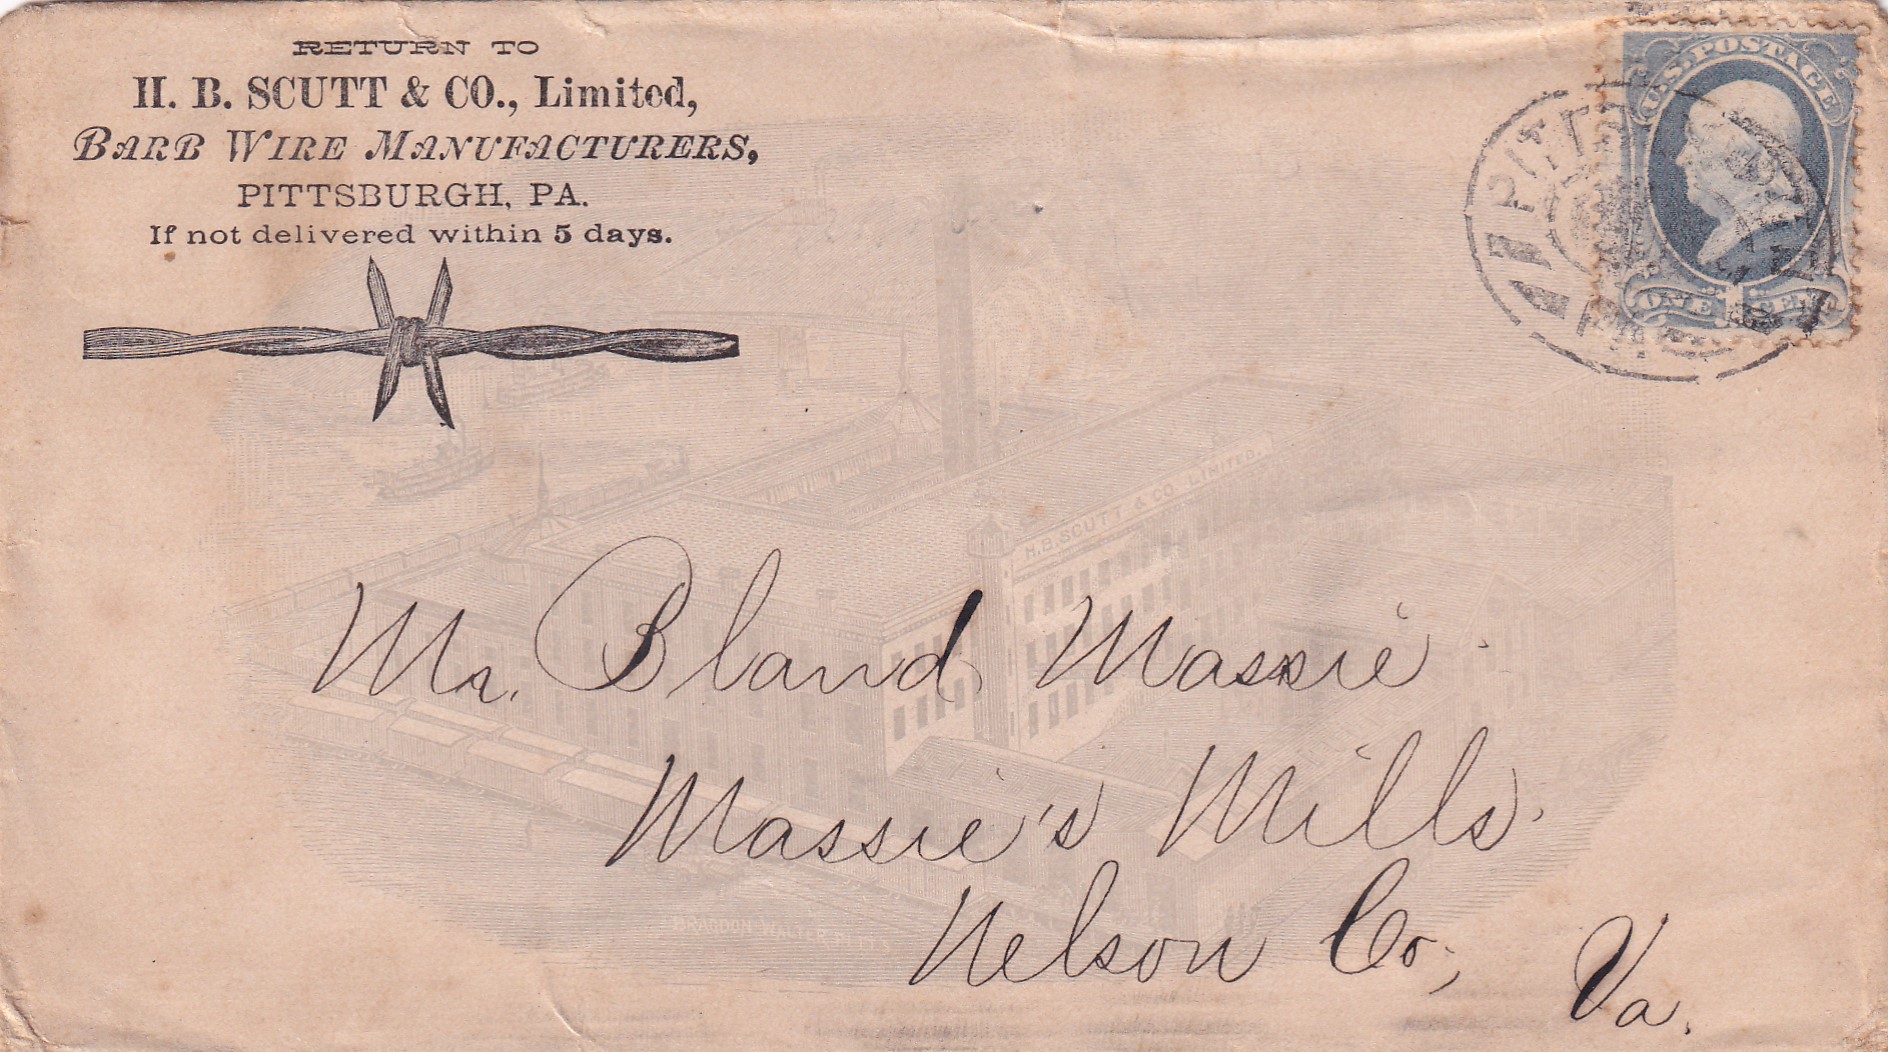 RETURN TO
H. B. SCUTT & CO., Limited,
BARB WIRE MANUFACTURERS,
PITTSBURGH, PA.
If not delivered within 5 days.
U.S. POSTAGE
ONE 1 CENT
PITTS
H.B. SCUTT & CO. LIMITED.
Mr. Bland Massie
Massie's Mills.
Nelson Co,
Va.
BRAGDON WALTER PITT